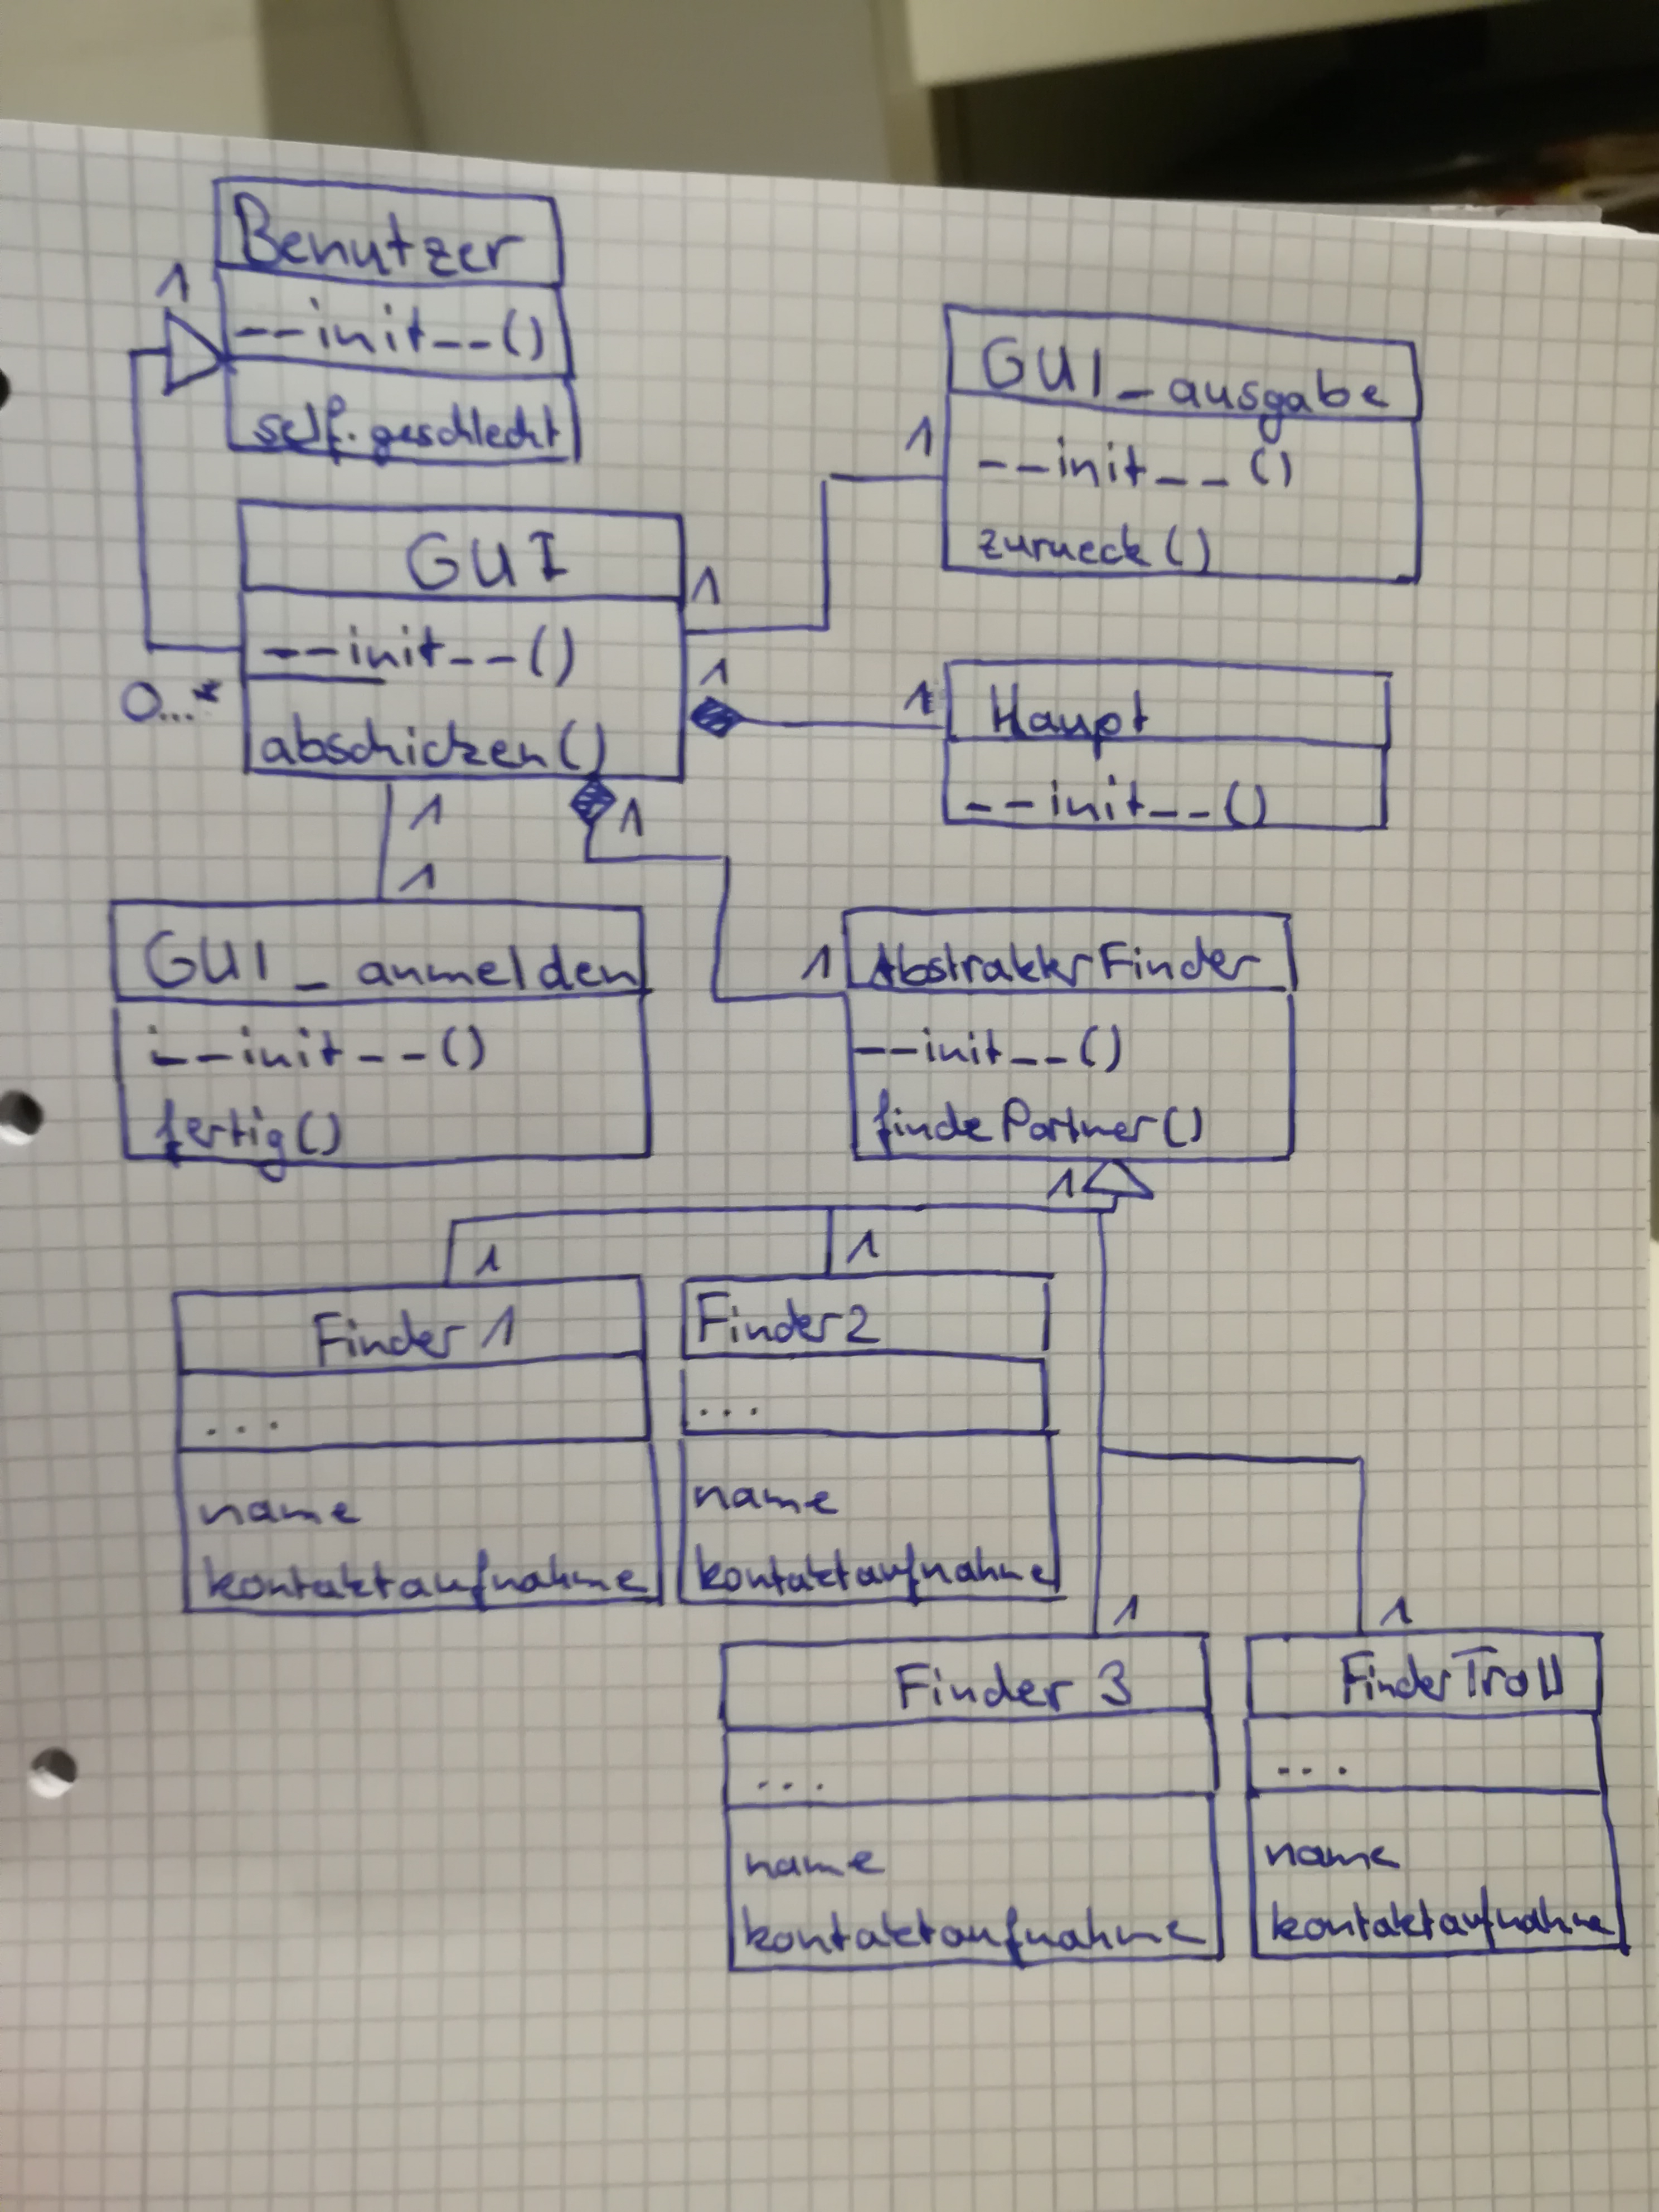 Benutzer
1
--init--()
self.geschlecht
GUI_ausgabe
1
--init__()
zurueck()
GUI
1
--init--()
0...*
abschicken()
1
1
Haupt
--init--()
1
1
1
GUI_anmelden
--init--()
fertig()
1
AbstrakterFinder
--init--()
findePartner()
1
1
1
Finder 1
...
name
kontaktaufnahme
Finder2
...
name
kontaktaufnahme
1
1
Finder 3
...
name
kontaktaufnahme
FinderTroll
...
name
kontaktaufnahme